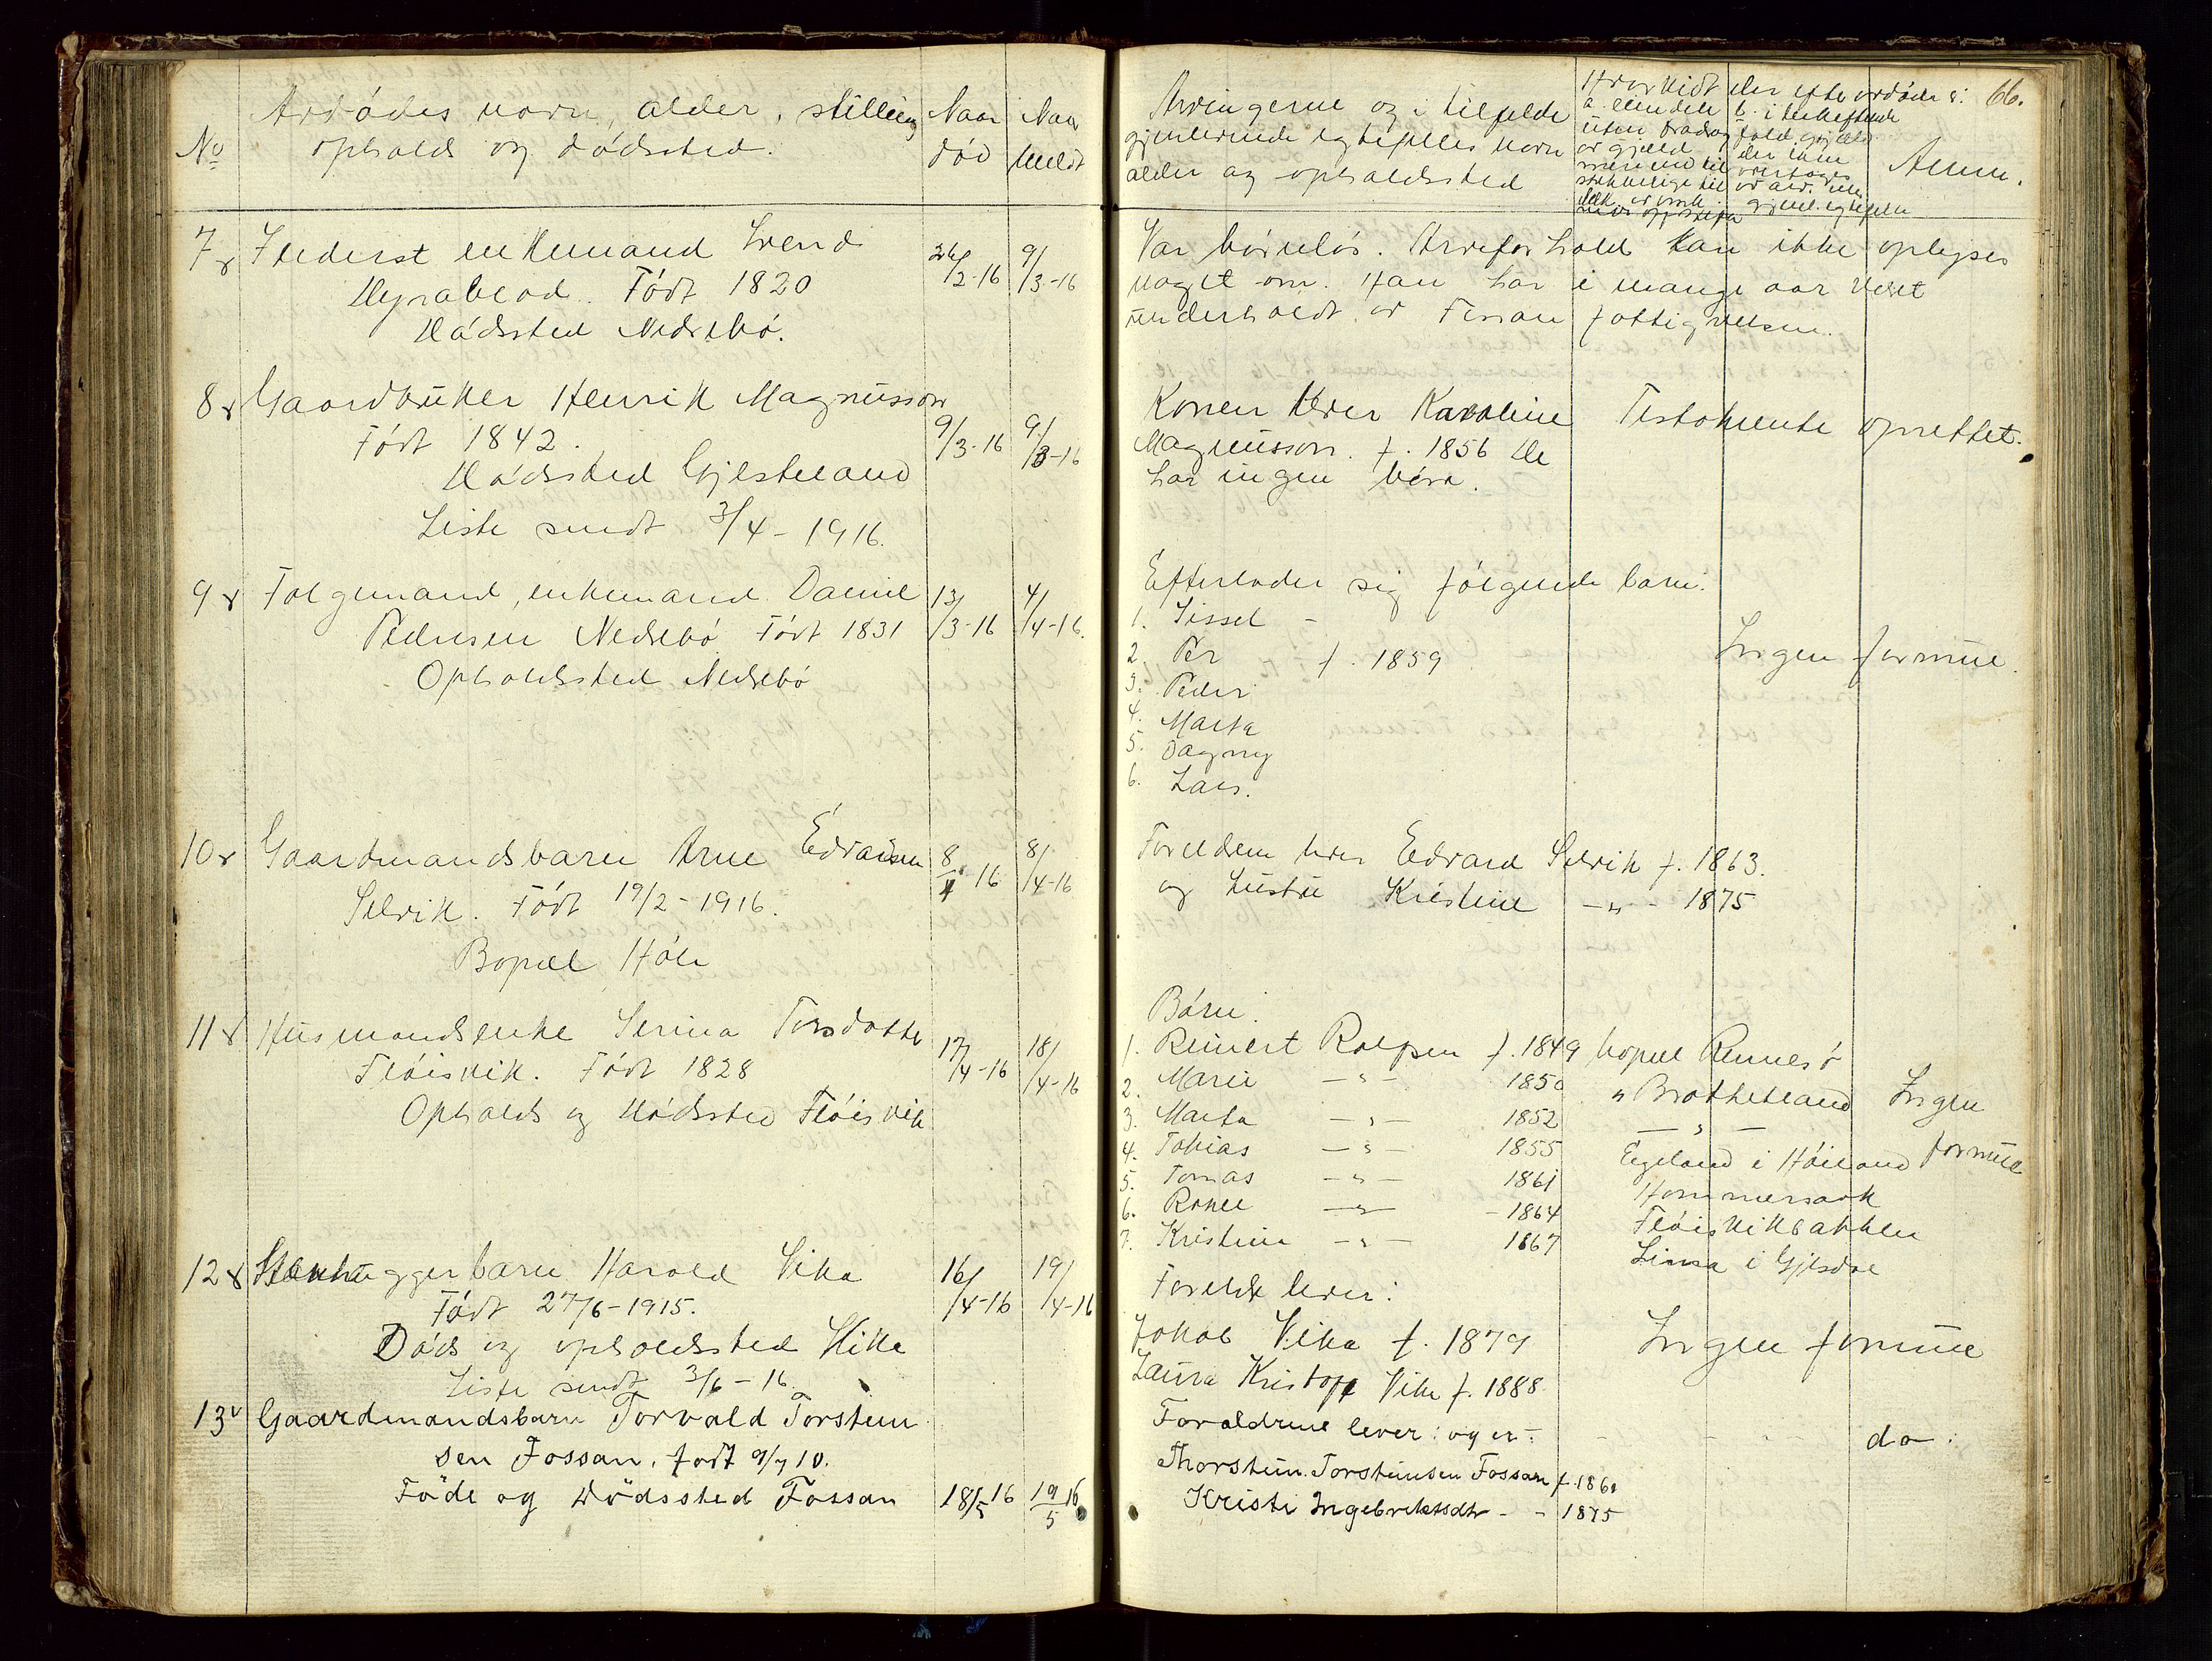 66.
No
Avdødes navn, alder, stilling
ophold og dødssted.
Naar
død
Naar
meldt
Arvingerne og i tilfælde
gjenlevende egtefælles navn
alder og opholdssted
Hvorvidt der efter avdøde er:
Anm.
7 Inderst enkemand Svend
Dyrabod. Født 1820
Dødssted Nedrebø.
26/2-16
9/3-16
Var barnløs. Arveforhold kan ikke oplyses
noget om. Han har i mange aar været
underholdt av Fossan fattigvæsen.
8 Gaardbruker Henrik Magnusson
Født 1842.
Dødssted Gjesteland
Liste sendt 3/4-1916.
9/3-16
9/3-16
Konen lever Karoline
Magnusson. f. 1856 De
har ingen børn.
Testamente oprettet.
9 Folgemand, enkemand Daniel
Pedersen Nedrebø Født 1831
Opholdssted Nedrebø
13/3-16
4/4-16.
Efterlader sig følgende barn:
1. Sissel -
2. Per f. 1859
3. Peder
4. Marta
5. Dagny
6. Lars.
Ingen formue.
10 Gaardmandsbarn Arne Edvardsen
Selvik. Født 19/2-1916.
Bopæl Høle
8/4 16
8/4-16
Foreldrene lever Edvard Selvik f. 1863.
og hustru Kristine -"- 1875
11 Husmandsenke Serina Torsdotter
Fløisvik. Født 1828
Opholds og dødssted Fløisvik
17/4-16
18/4-16
Børn.
1. Reinert Rolfsen f. 1849 bopæl Rennesø
2. Marie -"- 1850 " Brattetland
3. Marta -"- 1852 -"-
4. Tobias -"- 1855 Eigeland i Høiland
5. Tomas -"- 1861 Hommersaak
6. Rakel -"- 1864 Fløisvikbakken
7. Kristine -"- 1867 Lima i Gjesdal
Ingen
formue
12 Stenhuggerbarn Harald Vika
Født 27/6-1915.
Døds og opholdssted Vika
Liste sendt 3/6-16
16/4-16
19/4-16
Foreldre lever:
Jakob Vika f. 1879
Laura Kristoff Vika f. 1888.
Ingen formue
13 Gaardmandsbarn Torvald Torstein
sen Fossan. født 9/7 10.
Föde og Dödssted Fossan
18/5 16
19/5 16
Forældrene lever: og er:
Thorstein. Torsteinsen Fossan f. 1860
Kristi Ingebrektsdtr - - 1875
do.